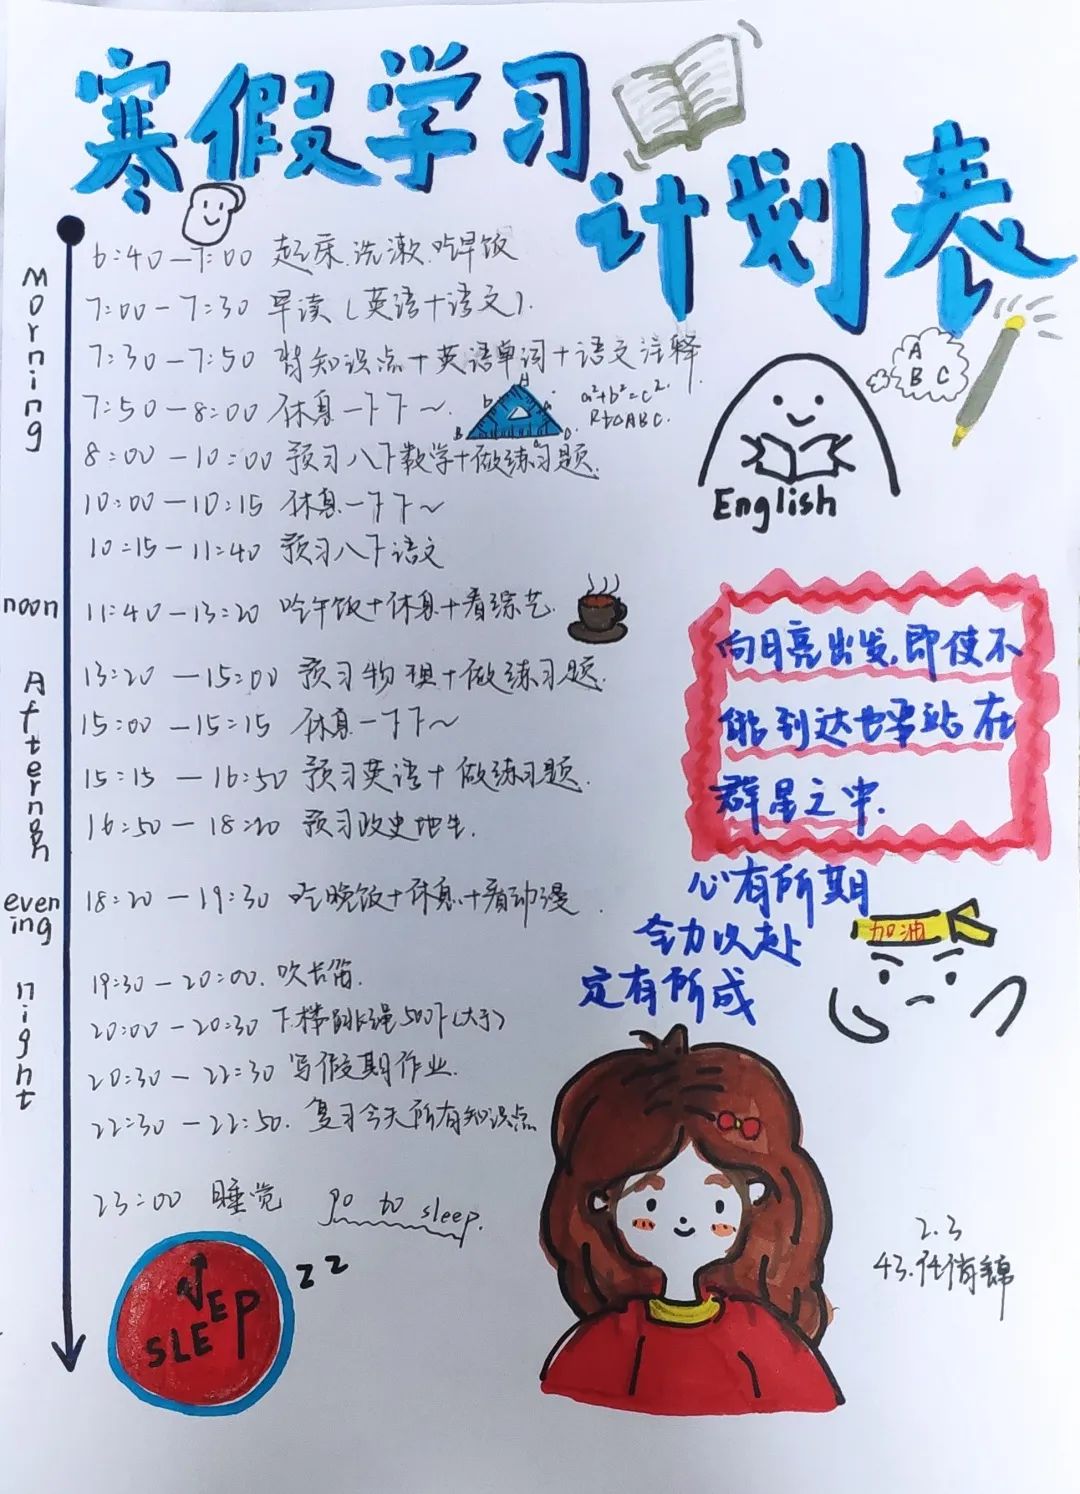 寒假学习
计划表
Morning
6:40—7:00 起床.洗漱.吃早饭
7:00—7:30 早读(英语+语文).
7:30—7:50 背知识点+英语单词+语文注释.
7:50—8:00 休息一下下~.
a²+b²=c².
Rt△ABC.
A
B C
English
8:00—10:00 预习八下数学+做练习题.
10:00—10:15 休息一下下~
10:15—11:40 预习八下语文
noon
11:40—13:20 吃午饭+休息+看综艺.
Afternoon
13:20—15:00 预习物理+做练习题.
15:00—15:15 休息一下下~
15:15—16:50 预习英语+做练习题.
16:50—18:20 预习政史地生.
向月亮出发,即使不
能到达也能站在
群星之中.
evening
18:20—19:30 吃晚饭+休息+看动漫.
心有所期
全力以赴
定有所成
加油
night
19:30—20:00.吹长笛.
20:00—20:30 下楼跳绳500下(大于)
20:30—22:30 写假期作业.
22:30—22:50.复习今天所有知识点
23:00 睡觉 go to sleep.
SLEEP
zz
2.3
43.任